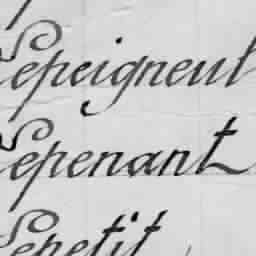 Lepeigneul
Lepenant
Lepetit